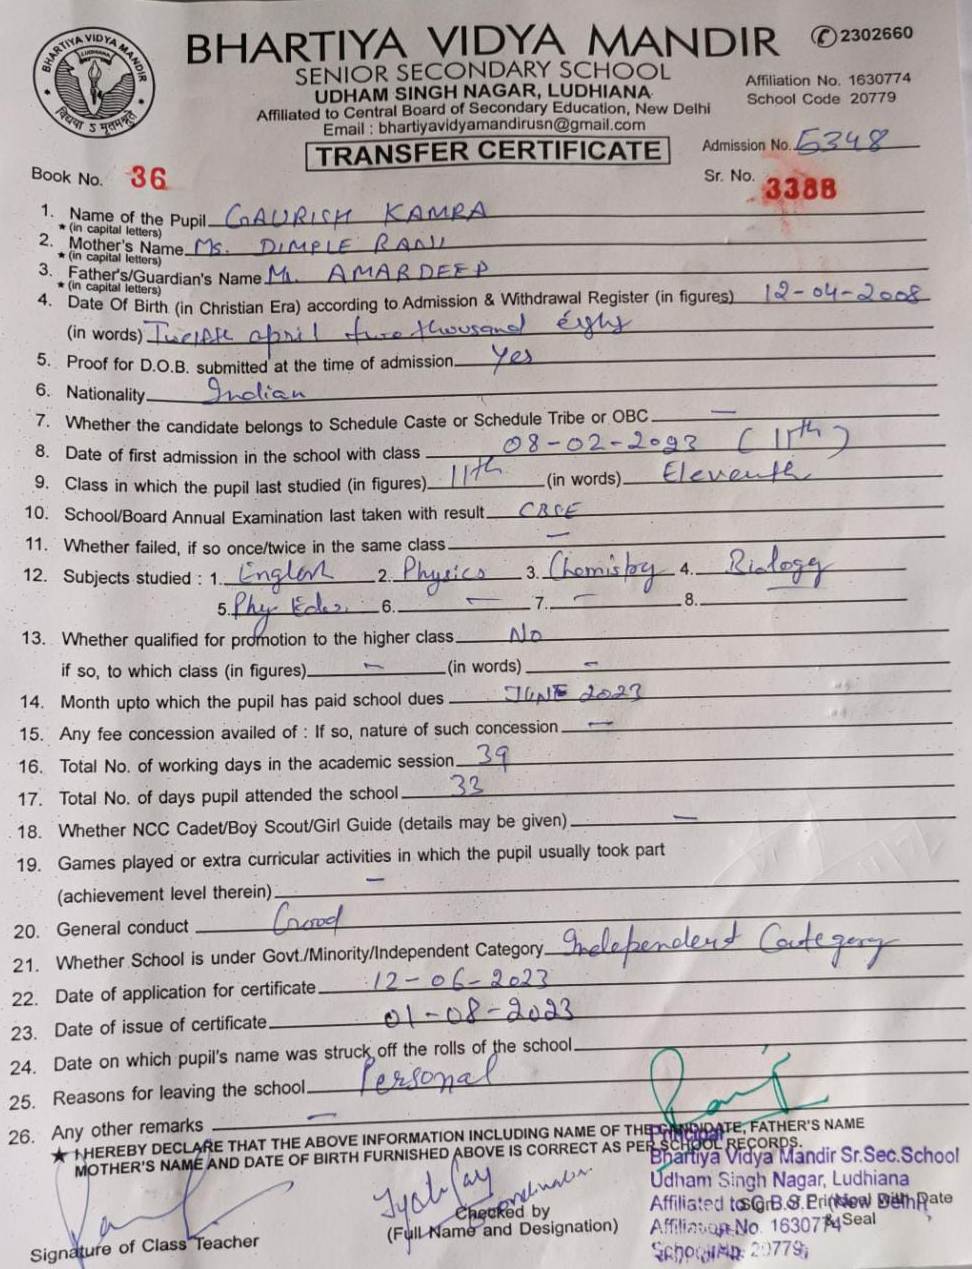 BHARTIYA VIDYA MANDIR
LUDHIANA
विद्यया ऽ मृतमश्नुते
BHARTIYA VIDYA MANDIR ✆2302660
SENIOR SECONDARY SCHOOL
UDHAM SINGH NAGAR, LUDHIANA
Affiliated to Central Board of Secondary Education, New Delhi
Email : bhartiyavidyamandirusn@gmail.com
Affiliation No. 1630774
School Code 20779
TRANSFER CERTIFICATE
Admission No. 5348
Book No. 36
Sr. No. 3388
1. Name of the Pupil GAURISH KAMRA
* (in capital letters)
2. Mother's Name Ms. DIMPLE RANI
* (in capital letters)
3. Father's/Guardian's Name Mr. AMARDEEP
* (in capital letters)
4. Date Of Birth (in Christian Era) according to Admission & Withdrawal Register (in figures) 12-04-2008
(in words) april two thousand eight
5. Proof for D.O.B. submitted at the time of admission Yes
6. Nationality Indian
7. Whether the candidate belongs to Schedule Caste or Schedule Tribe or OBC —
8. Date of first admission in the school with class 08-02-2023 (11th)
9. Class in which the pupil last studied (in figures) 11th (in words) Eleventh
10. School/Board Annual Examination last taken with result CBSE
11. Whether failed, if so once/twice in the same class —
12. Subjects studied : 1. English 2. Physics 3. Chemistry 4. Biology
5. Phy Edu. 6. — 7. — 8.
13. Whether qualified for promotion to the higher class No
if so, to which class (in figures) — (in words) —
14. Month upto which the pupil has paid school dues JUNE 2023
15. Any fee concession availed of : If so, nature of such concession —
16. Total No. of working days in the academic session 39
17. Total No. of days pupil attended the school 33
18. Whether NCC Cadet/Boy Scout/Girl Guide (details may be given) —
19. Games played or extra curricular activities in which the pupil usually took part
(achievement level therein) —
20. General conduct Good
21. Whether School is under Govt./Minority/Independent Category Independent Category
22. Date of application for certificate 12-06-2023
23. Date of issue of certificate 01-08-2023
24. Date on which pupil's name was struck off the rolls of the school
25. Reasons for leaving the school Personal
26. Any other remarks —
★ I HEREBY DECLARE THAT THE ABOVE INFORMATION INCLUDING NAME OF THE CANDIDATE, FATHER'S NAME
MOTHER'S NAME AND DATE OF BIRTH FURNISHED ABOVE IS CORRECT AS PER SCHOOL RECORDS.
Principal
Bhartiya Vidya Mandir Sr.Sec.School
Udham Singh Nagar, Ludhiana
Affiliated to C.B.S.E. New Delhi
Affiliation No. 1630774
School No. 20779
Signature of Class Teacher
Checked by
(Full Name and Designation)
Date
& Seal